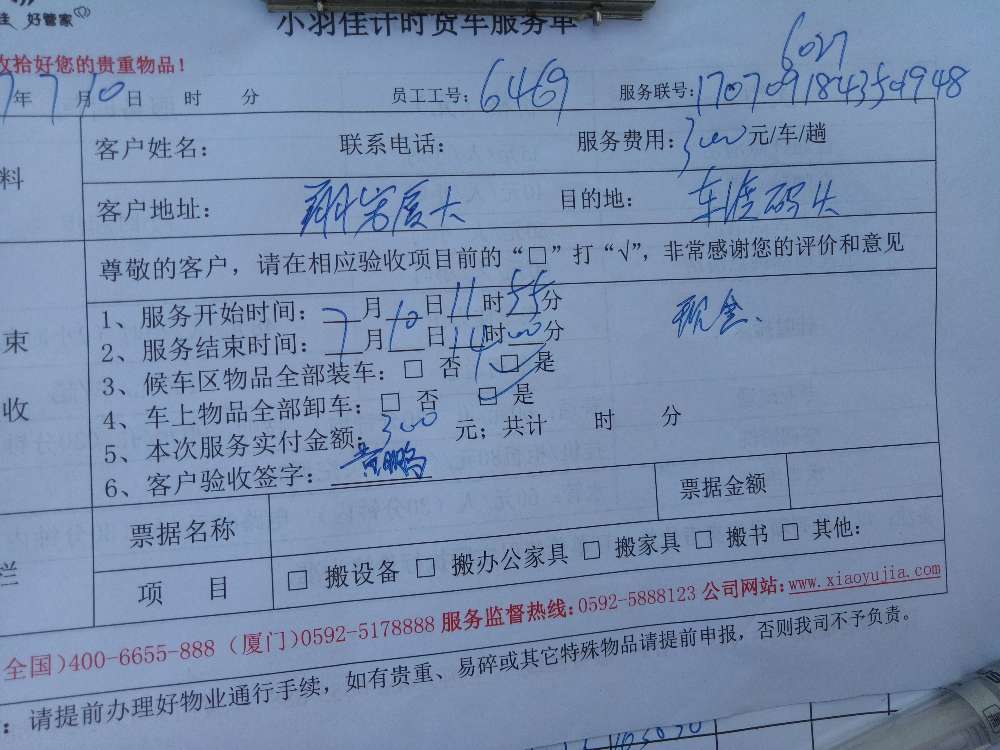 好管家
小羽佳计时货车服务单
收拾好您的贵重物品！
6027
7年7月10日 时 分 员工工号：6469 服务联号：
料
客户姓名： 联系电话： 服务费用：300元/车/趟
客户地址：翔安厦大 目的地：东渡码头
尊敬的客户，请在相应验收项目前的“□”打“√”，非常感谢您的评价和意见
束
收
栏
1、服务开始时间：7月10日11时55分 现金
2、服务结束时间：7月10日14时00分
3、候车区物品全部装车：□ 否 □ 是
4、车上物品全部卸车：□ 否 □ 是
5、本次服务实付金额：300元；共计 时 分
6、客户验收签字：黄鹏
票据名称 票据金额
项 目 □ 搬设备 □ 搬办公家具 □ 搬家具 □ 搬书 □ 其他：
全国)400-6655-888（厦门)0592-5178888 服务监督热线：0592-5888123 公司网站：www.xiaoyujia.com
：请提前办理好物业通行手续，如有贵重、易碎或其它特殊物品请提前申报，否则我司不予负责。